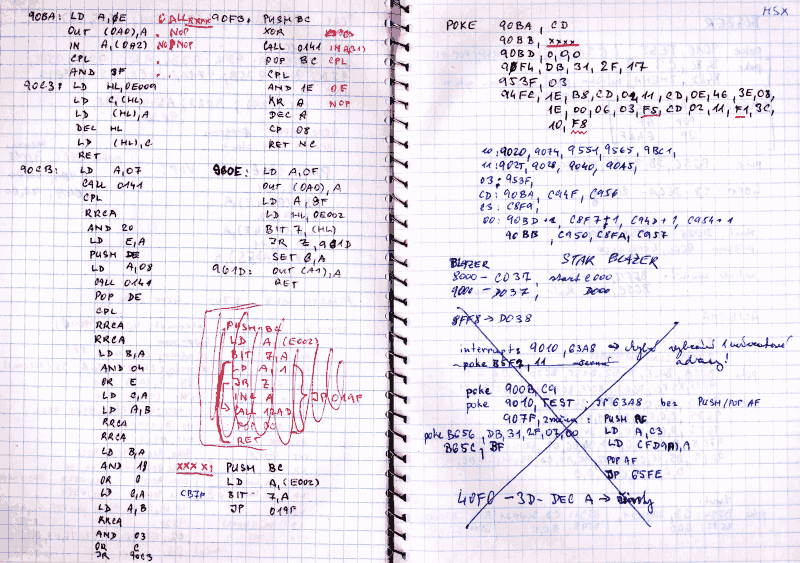 90BA: LD A,0E CALL xxxx
OUT (0A0),A . NOP
IN A,(0A2) NOP NOP
CPL
AND 3F
90C3: LD HL,0E009
LD C,(HL)
LD (HL),A
DEC HL
LD (HL),C
RET
90CB: LD A,07
CALL 0141
CPL
RRCA
AND 20
LD E,A
PUSH DE
LD A,08
CALL 0141
POP DE
CPL
RRCA
RRCA
LD B,A
AND 04
OR E
LD C,A
LD A,B
RRCA
RRCA
LD B,A
AND 18
OR C
LD C,A
LD A,B
RRCA
AND 03
OR C
JR 90C3
90F3: PUSH BC
XOR
CALL 0141 IN A(31)
POP BC CPL
CPL
AND 1E 0F
XR A NOP
DEC A
CP 08
RET NC
960E: LD A,0F
OUT (0A0),A
LD A,8F
LD HL,0E002
BIT 7,(HL)
JR Z,961D
SET 6,A
961D: OUT (A1),A
RET
PUSH BC
LD A,(E002)
BIT 7,A
LD A,1
JR Z,
INC A
CALL 12AD
POP BC
RET
JP 019F
xxxx: PUSH BC
LD A,(E002)
CB7F BIT 7,A
JP 019F
MSX
POKE 90BA, CD
90BB, xxxx
90BD, 0,0
90F4, DB, 31, 2F, 17
953F, 03
94FC, 1E, B8, CD, 02, 11, CD, 0E, 46, 3E, 08,
1E, 00, 06, 03, F5, CD 02, 11, F1, 3C,
10, F8
10: 9020, 9074, 9551, 9565, 9BC1,
11: 9025, 9028, 9040, 90A5,
03: 953F,
CD: 90BA, C94F, C956
C3: C8F9,
00: 90BD+1, C8F7+1, C94D+1, C954+1
90BB, C950, C8FA, C957
BLAZER STAR BLAZER
8000 – C037, start C000
9000 – D037, D000
8FF8 → D038
interrupts 9010, 63A8 → chybí vybrání 1 návratové adresy!
poke B5F2, 11
poke 900B, C9
poke 9010, TEST : JP 63A8 bez PUSH/POP AF
907F, změna : PUSH AF
poke B656, DB, 31, 2F, 07, 00 LD A, C3
B65C, BF LD (FD9A), A
POP AF
JP 65FE
40F0 – 3D – DEC A → životy